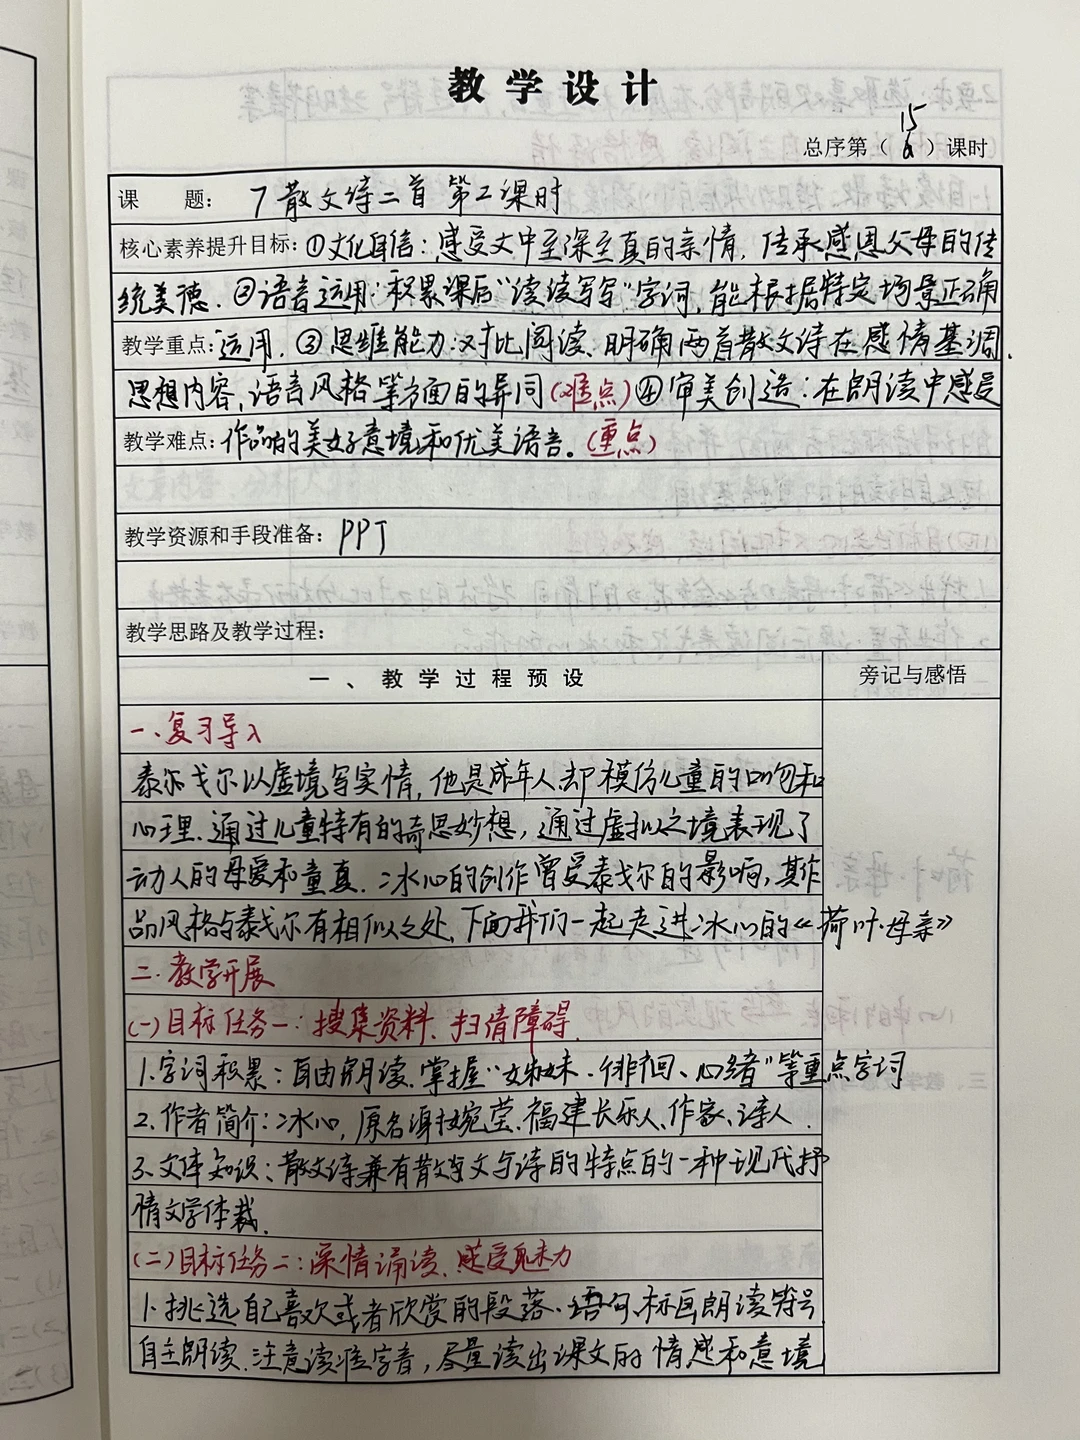 教学设计
15
总序第（6）课时
课 题： 7 散文诗二首 第2课时
核心素养提升目标：①文化自信：感受文中至深至真的亲情，传承感恩父母的传
统美德.②语言运用：积累课后“读读写写”字词，能根据特定场景正确
教学重点：运用.③思维能力：对比阅读、明确两首散文诗在感情基调、
思想内容，语言风格等方面的异同（难点）④审美创造：在朗读中感受
教学难点：作品的美好意境和优美语言。（重点）
教学资源和手段准备：PPT
教学思路及教学过程：
一、教学过程预设 旁记与感悟
一、复习导入
泰尔戈尔以虚境写实情，他是成年人却模仿儿童的口吻和
心理.通过儿童特有的奇思妙想，通过虚拟之境表现了
动人的母爱和童真.冰心的创作曾受泰戈尔的影响，其作
品风格与泰戈尔有相似之处.下面我们一起走进冰心的《荷叶·母亲》
二.教学开展
(一)目标任务一：搜集资料、扫清障碍.
1.字词积累：自由朗读.掌握“姊妹.徘徊、心绪”等重点字词
2.作者简介：冰心，原名谢婉莹.福建长乐人、作家、诗人.
3.文体知识：散文诗兼有散文与诗的特点的一种现代抒
情文学体裁.
(二)目标任务二：深情诵读.感受魅力
1.挑选自己喜欢或者欣赏的段落.语句.标画朗读符号
自主朗读.注意读准字音，尽量读出课文的情感和意境